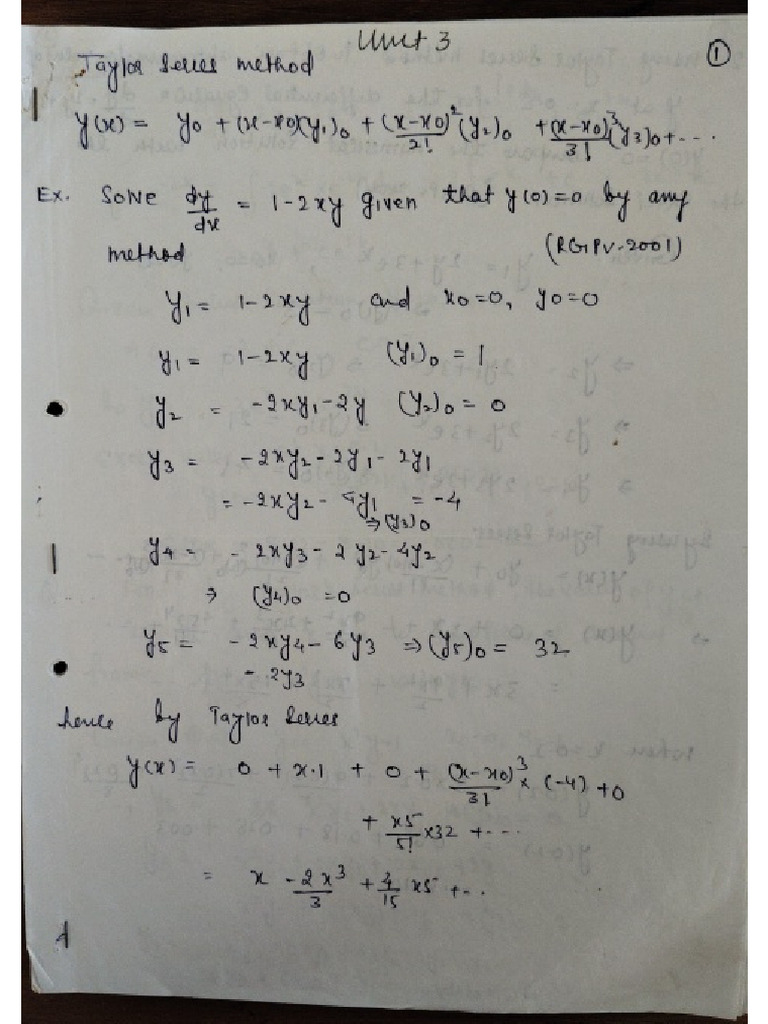 Unit 3
①
Taylor Series method
y(x) = y0 + (x-x0)(y1)0 + (x-x0)²/2! (y2)0 + (x-x0)³/3! (y3)0 + ....
Ex. Solve dy/dx = 1-2xy given that y(0)=0 by any
method (RGPV-2001)
y1 = 1-2xy and x0=0, y0=0
y1 = 1-2xy (y1)0 = 1
y2 = -2xy1-2y (y2)0 = 0
y3 = -2xy2-2y1-2y1
= -2xy2 - 4y1 = -4
⇒(y3)0
y4 = -2xy3-2y2-4y2
⇒ (y4)0 = 0
y5 = -2xy4-6y3 ⇒(y5)0 = 32
-2y3
hence by Taylor Series
y(x) = 0 + x.1 + 0 + (x-x0)³/3! × (-4) +0
+ x5/5! ×32 + ...
= x - 2x³/3 + 4/15 x5 + ..